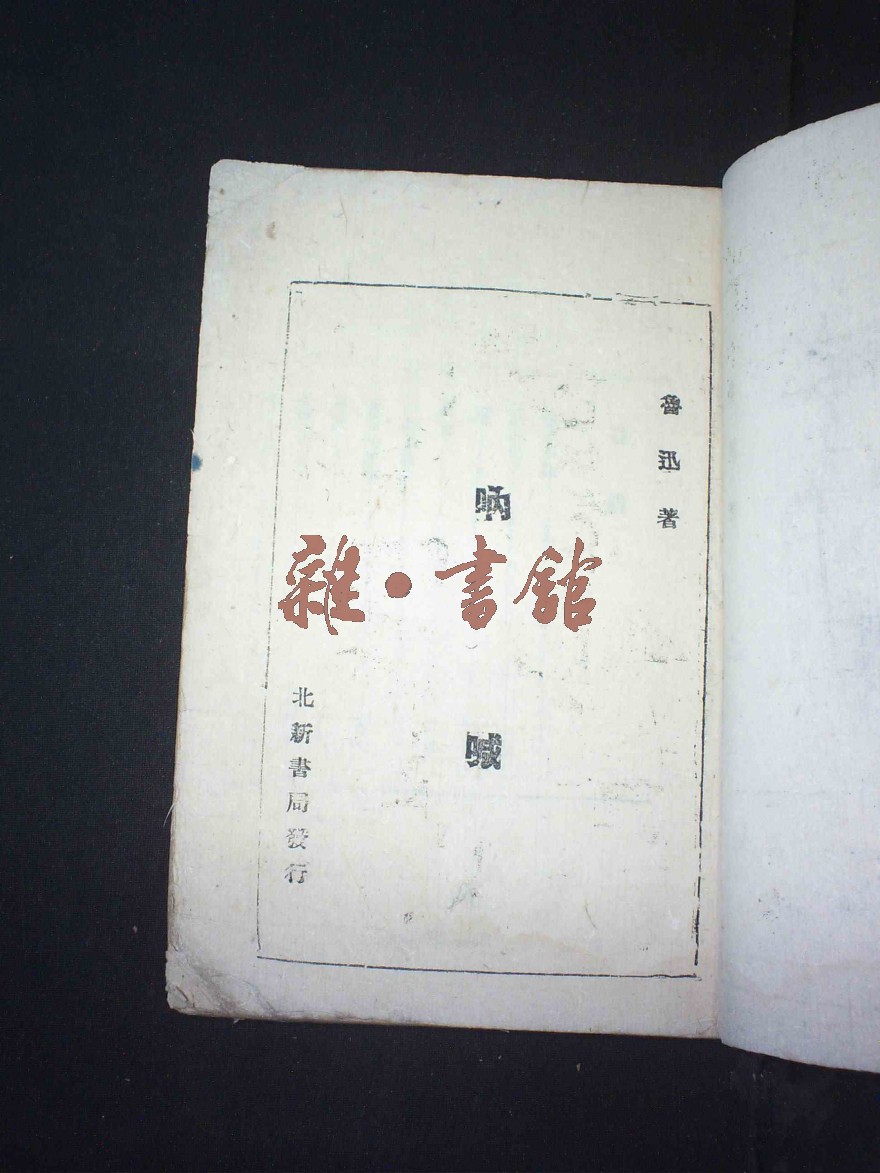 魯迅著
吶喊
北新書局發行
雜·書館